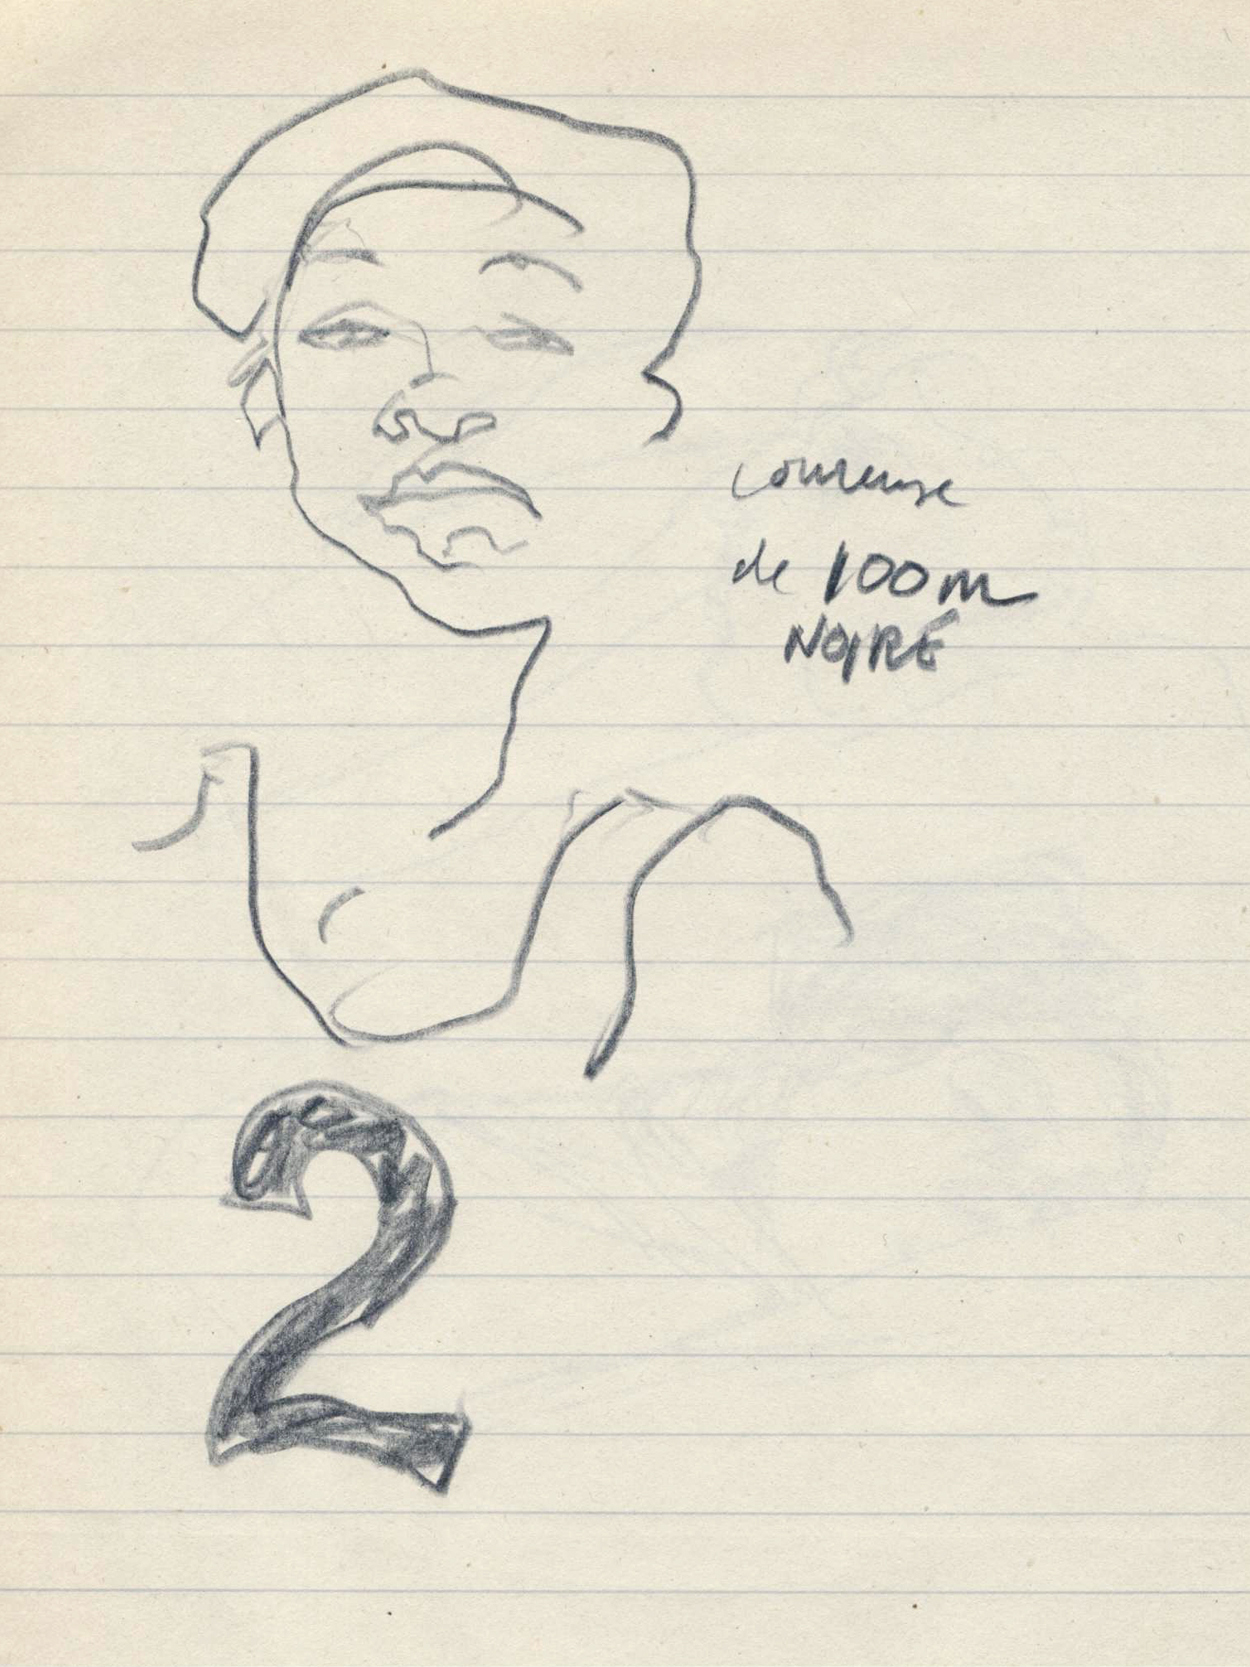 coureuse
de 100m
NOIRE
2